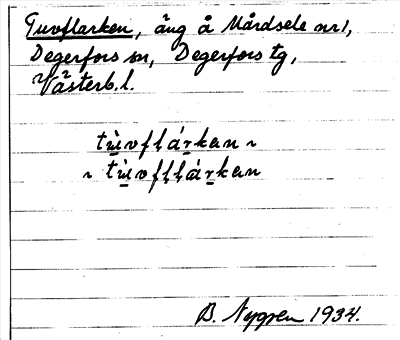 Tuvflarken, äng å Mårdsele nr 1,
Degerfors sn, Degerfors tg,
Västerb. l.
tùvflárkan ~
~ tùvflláṛkan
B. Nygren 1934.